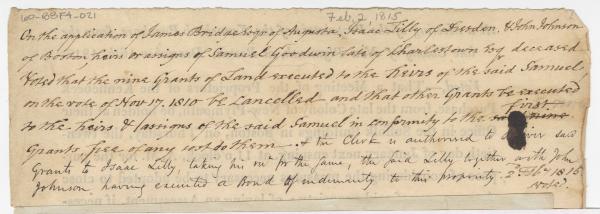 160-BBF4-021
Feb. 2, 1815
On the application of James Bridge esqr of Augusta, Isaac Lilly of Dresden, & John Johnson
of Boston heirs or assigns of Samuel Goodwin late of Charlestown Esq deceased
Voted that the nine Grants of Land executed to the heirs of the said Samuel
on the vote of Nov 17. 1810 be Cancelled and that other Grants be executed
to the heirs & assigns of the said Samuel in conformity to the said nine
first
Grants free of any cost to them - & the Clerk is authorized to deliver said
Grants to Isaac Lilly, taking his rect for the same - the said Lilly together with John
Johnson, having executed a Bond of indemnity to this propriety. 2d Feby 1815
Voted.